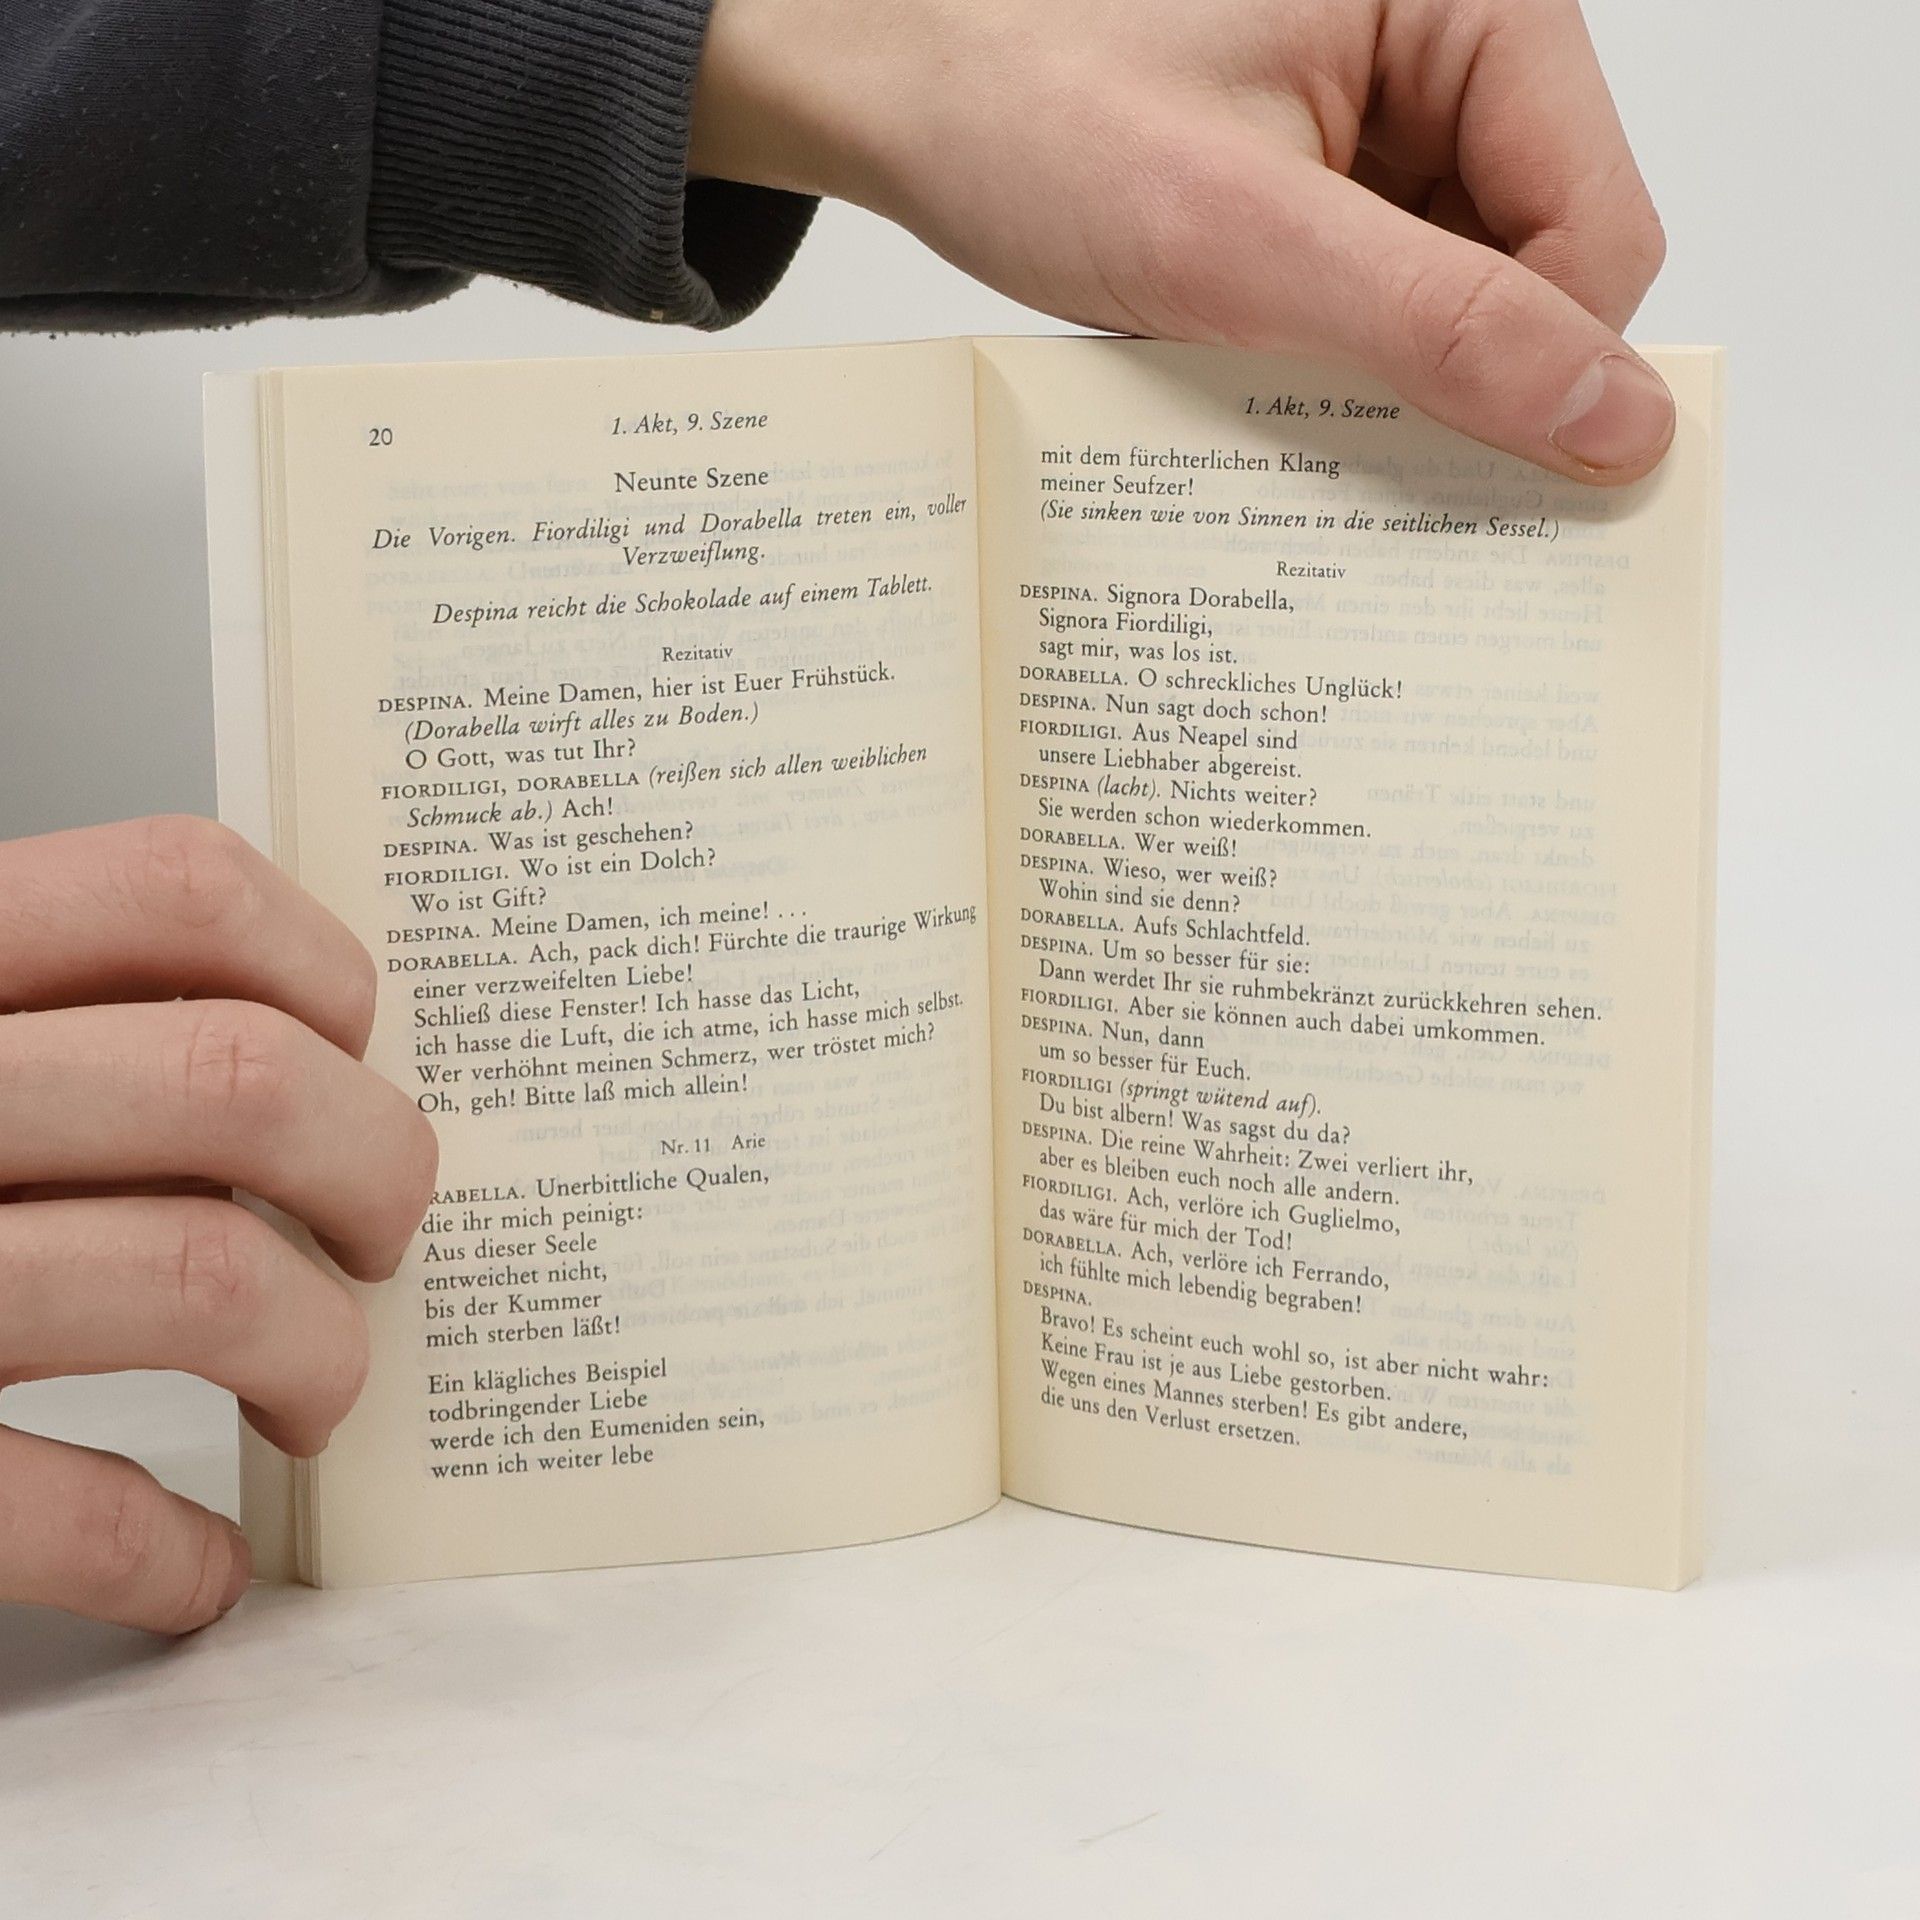 20
1. Akt, 9. Szene
Neunte Szene
Die Vorigen. Fiordiligi und Dorabella treten ein, voller
Verzweiflung.
Despina reicht die Schokolade auf einem Tablett.
Rezitativ
DESPINA. Meine Damen, hier ist Euer Frühstück.
(Dorabella wirft alles zu Boden.)
O Gott, was tut Ihr?
FIORDILIGI, DORABELLA (reißen sich allen weiblichen
Schmuck ab.) Ach!
DESPINA. Was ist geschehen?
FIORDILIGI. Wo ist ein Dolch?
Wo ist Gift?
DESPINA. Meine Damen, ich meine! . . .
DORABELLA. Ach, pack dich! Fürchte die traurige Wirkung
einer verzweifelten Liebe!
Schließ diese Fenster! Ich hasse das Licht,
ich hasse die Luft, die ich atme, ich hasse mich selbst.
Wer verhöhnt meinen Schmerz, wer tröstet mich?
Oh, geh! Bitte laß mich allein!
Nr. 11 Arie
RABELLA. Unerbittliche Qualen,
die ihr mich peinigt:
Aus dieser Seele
entweichet nicht,
bis der Kummer
mich sterben läßt!
Ein klägliches Beispiel
todbringender Liebe
werde ich den Eumeniden sein,
wenn ich weiter lebe
1. Akt, 9. Szene
mit dem fürchterlichen Klang
meiner Seufzer!
(Sie sinken wie von Sinnen in die seitlichen Sessel.)
Rezitativ
DESPINA. Signora Dorabella,
Signora Fiordiligi,
sagt mir, was los ist.
DORABELLA. O schreckliches Unglück!
DESPINA. Nun sagt doch schon!
FIORDILIGI. Aus Neapel sind
unsere Liebhaber abgereist.
DESPINA (lacht). Nichts weiter?
Sie werden schon wiederkommen.
DORABELLA. Wer weiß!
DESPINA. Wieso, wer weiß?
Wohin sind sie denn?
DORABELLA. Aufs Schlachtfeld.
DESPINA. Um so besser für sie:
Dann werdet Ihr sie ruhmbekränzt zurückkehren sehen.
FIORDILIGI. Aber sie können auch dabei umkommen.
DESPINA. Nun, dann
um so besser für Euch.
FIORDILIGI (springt wütend auf).
Du bist albern! Was sagst du da?
DESPINA. Die reine Wahrheit: Zwei verliert ihr,
aber es bleiben euch noch alle andern.
FIORDILIGI. Ach, verlöre ich Guglielmo,
das wäre für mich der Tod!
DORABELLA. Ach, verlöre ich Ferrando,
ich fühlte mich lebendig begraben!
DESPINA.
Bravo! Es scheint euch wohl so, ist aber nicht wahr:
Keine Frau ist je aus Liebe gestorben.
Wegen eines Mannes sterben! Es gibt andere,
die uns den Verlust ersetzen.